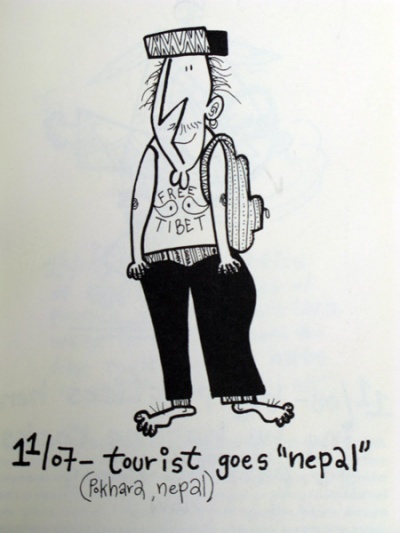 FREE
TIBET
11/07 - tourist goes "nepal"
(Pokhara, nepal)